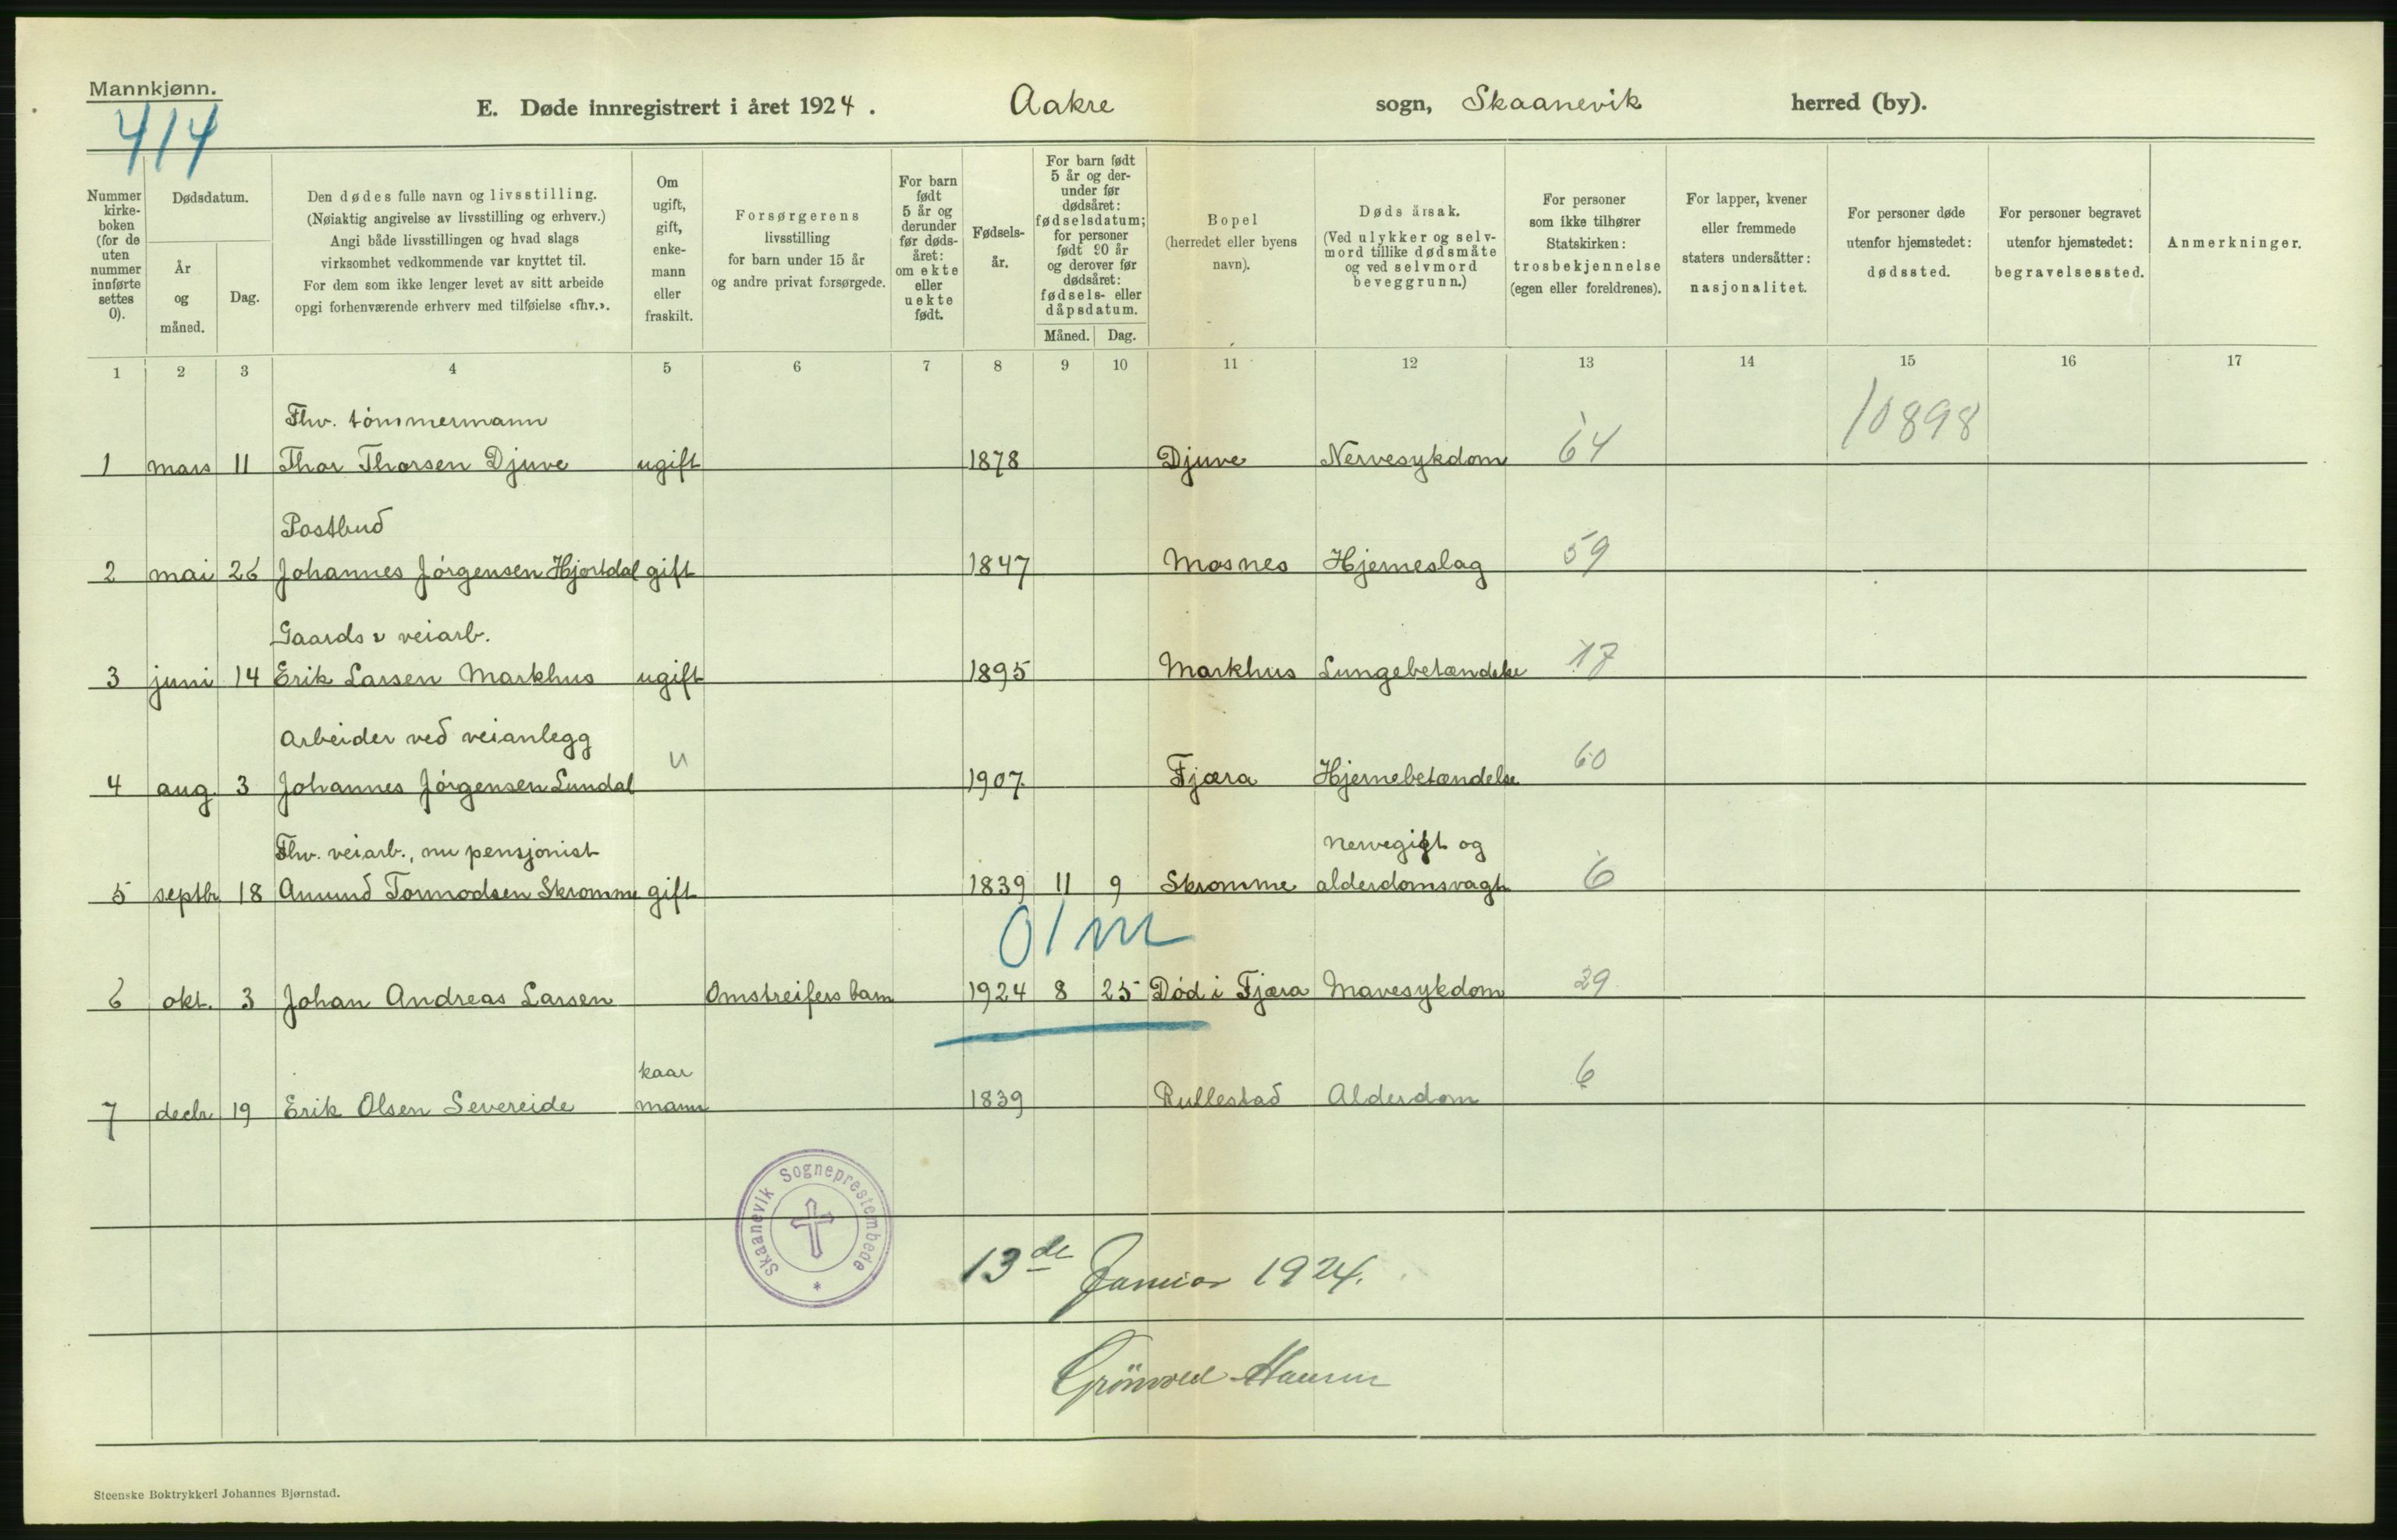 Mannkjønn.
414
E. Døde innregistrert i året 1924. Aakre sogn, Skaanevik herred (by).
Nummer kirke-boken (for de uten nummer innførte settes 0).
Dødsdatum.
År og måned.
Dag.
Den dødes fulle navn og livsstilling.
(Nøiaktig angivelse av livsstilling og erhverv.)
Angi både livsstillingen og hvad slags
virksomhet vedkommende var knyttet til.
For dem som ikke lenger levet av sitt arbeide
opgi forhenværende erhverv med tilføielse «fhv.».
Om ugift, gift, enke-mann eller fraskilt.
Forsørgerens
livsstilling
for barn under 15 år
og andre privat forsørgede.
For barn født 5 år og derunder før døds-året: om ekte eller uekte født.
Fødsels-år.
For barn født 5 år og der-under før dødsåret: fødselsdatum; for personer født 90 år og derover før dødsåret: fødsels- eller dåpsdatum.
Måned. Dag.
Bopel
(herredet eller byens navn).
Døds årsak.
(Ved ulykker og selv-mord tillike dødsmåte og ved selvmord beveggrunn.)
For personer
som ikke tilhører
Statskirken:
trosbekjennelse
(egen eller foreldrenes).
For lapper, kvener
eller fremmede
staters undersåtter:
nasjonalitet.
For personer døde
utenfor hjemstedet:
dødssted.
For personer begravet
utenfor hjemstedet:
begravelsessted.
Anmerkninger.
1 2 3 4 5 6 7 8 9 10 11 12 13 14 15 16 17
Fhv. tömmermann
1 mars 11 Thor Thorsen Djuve ugift 1878 Djuve Nervesykdom 64 10898
Postbud
2 mai 26 Johannes Jörgensen Hjortdal gift 1847 Mosnes Hjerneslag 59
Gaards & veiarb.
3 juni 14 Erik Larsen Markhus ugift 1895 Markhus Lungebetændelse 17
Arbeider ved veianlegg
4 aug. 3 Johannes Jörgensen Lundal u 1907 Fjæra Hjernebetændelse 60
Fhv. veiarb., nu pensjonist nervegigt og
5 septbr 18 Amund Tormodsen Skromme gift 1839 11 9 Skromme alderdomsvagh 6
0 1 m
6 okt. 3 Johan Andreas Larsen Omstreifers barn 1924 8 25 Död i Fjæra Mavesykdom 29
kaar
7 decbr 19 Erik Olsen Severeide mann 1839 Rullestad Alderdom 6
Skaanevik Sogneprestembede
13de Januar 1924.
Grönvold Hansen
Steenske Boktrykkeri Johannes Bjørnstad.